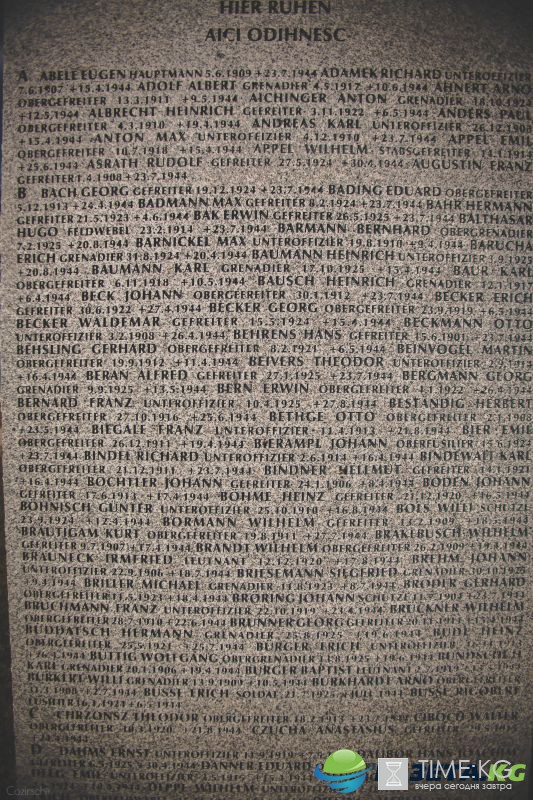 HIER RUHEN
AICI ODIHNESC
A ABELE EUGEN HAUPTMANN 5.6.1909 +23.7.1944 ADAMEK RICHARD UNTEROFFIZIER
7.6.1907 +15.4.1944 ADOLF ALBERT GRENADIER 4.5.1917 +10.6.1944 AHNERT ARNO
OBERGEFREITER 13.3.1911 +9.5.1944 AICHINGER ANTON GRENADIER 18.10.1924
+12.5.1944 ALBRECHT HEINRICH GEFREITER 3.11.1922 +6.5.1944 ANDERS PAUL
OBERGEFREITER 4.3.1910 +19.4.1944 ANDREAS KARL UNTEROFFIZIER 26.12.1908
+15.4.1944 ANTON MAX UNTEROFFIZIER 4.12.1910 +23.7.1944 APPEL EMIL
OBERGEFREITER 10.7.1918 +15.4.1944 APPEL WILHELM STABSGEFREITER 14.1.1914
+25.6.1944 ASRATH RUDOLF GEFREITER 27.5.1924 +30.4.1944 AUGUSTIN FRANZ
GEFREITER 1.4.1908 +23.7.1944
B BACH GEORG GEFREITER 19.12.1924 +23.7.1944 BADING EDUARD OBERGEFREITER
5.12.1913 +24.4.1944 BADMANN MAX GEFREITER 8.2.1924 +23.7.1944 BAHR HERMANN
GEFREITER 21.5.1923 +4.6.1944 BAK ERWIN GEFREITER 26.5.1925 +23.7.1944 BALTHASAR
HUGO FELDWEBEL 23.2.1914 +23.7.1944 BARMANN BERNHARD OBERGRENADIER
7.2.1925 +20.8.1944 BARNICKEL MAX UNTEROFFIZIER 19.8.1910 +9.4.1944 BARUCHA
ERICH GRENADIER 31.8.1924 +20.4.1944 BAUMANN HEINRICH UNTEROFFIZIER
+20.8.1944 BAUMANN KARL GRENADIER 17.10.1925 +13.4.1944 BAUR KARL
OBERGEFREITER 6.11.1918 +10.5.1944 BAUSCH HEINRICH GRENADIER 12.1.1917
+6.4.1944 BECK JOHANN OBERGEFREITER 30.1.1912 +23.7.1944 BECKER ERICH
GEFREITER 30.6.1922 +7.4.1944 BECKER GEORG OBERGEFREITER 23.9.1919 +6.5.1944
BECKER WALDEMAR GEFREITER 15.5.1924 +15.4.1944 BECKMANN OTTO
UNTEROFFIZIER 3.2.1908 +26.4.1944 BEHRENS HANS GEFREITER 15.6.1901 +23.7.1944
BEHSLING GERHARD OBERGEFREITER 8.2.1921 +6.5.1944 BEINVOGEL MARTIN
OBERGEFREITER 19.9.1912 +11.4.1944 BEIVERS THEODOR UNTEROFFIZIER
+16.4.1944 BERAN ALFRED GEFREITER 27.1.1925 +23.7.1944 BERGMANN GEORG
GRENADIER 9.9.1925 +13.5.1944 BERN ERWIN OBERGEFREITER 4.1.1922 +26.4.1944
BERNARD FRANZ UNTEROFFIZIER 10.4.1925 +27.8.1944 BESTÄNDIG HERBERT
OBERGEFREITER 27.10.1916 +25.6.1944 BETHGE OTTO OBERGEFREITER 2.1.1908
+23.5.1944 BIEGALE FRANZ UNTEROFFIZIER 11.4.1913 +21.8.1944 BIER EMIL
OBERGEFREITER 26.12.1911 +19.4.1944 BIERAMPL JOHANN OBERFÜSILIER
+23.7.1944 BINDEL RICHARD UNTEROFFIZIER 2.6.1914 +16.4.1944 BINDEWALT KARL
OBERGEFREITER 21.12.1911 +23.7.1944 BINDNER HELLMUT GEFREITER 14.1.1921
+16.4.1944 BOCHTLER JOHANN GEFREITER 24.1.1906 +8.4.1944 BODEN JOHANN
GEFREITER 17.6.1913 +17.4.1944 BÖHME HEINZ GEFREITER 21.12.1920 +16.5.1944
BÖHNISCH GÜNTER UNTEROFFIZIER 25.10.1910 +16.8.1944 BOLS WILLI SCHÜTZE
23.9.1924 +12.4.1944 BORMANN WILHELM GEFREITER 13.2.1909 +18.5.1944
BRÄUTIGAM KURT OBERGEFREITER 19.8.1911 +27.7.1944 BRAKEBUSCH WILHELM
GEFREITER 9.7.1907 +17.4.1944 BRANDT WILHELM OBERGEFREITER 26.2.1909
BRAUNECK IRMFRIED LEUTNANT 12.12.1920 +17.8.1944 BREHM JOHANN
UNTEROFFIZIER 22.2.1908 +18.7.1944 BRIESEMANN SIEGFRIED GRENADIER 30.10.1925
+9.4.1944 BRILLER MICHAEL GRENADIER 11.8.1923 +8.7.1944 BRÖDER GERHARD
OBERGEFREITER 11.5.1923 +18.4.1944 BRÖRING JOHANN SCHÜTZE
BRUCHMANN FRANZ UNTEROFFIZIER 22.10.1919 +23.4.1944 BRÜCKNER WILHELM
OBERGEFREITER 28.7.1910 +22.6.1944 BRUNNER GEORG GEFREITER
BUDDATSCH HERMANN GRENADIER 25.8.1925 +19.6.1944 BUDE HEINZ
OBERGEFREITER 25.5.1921 +25.7.1944 BÜRGER ERICH UNTEROFFIZIER
BUTTIG WOLFGANG OBERGRENADIER
KARL GRENADIER 20.1.1906 +19.4.1944 BURGER BAPTIST LEUTNANT
BURKERT WILLI GRENADIER 13.9.1909 +10.5.1944 BURKHARDT ARNO OBERGEFREITER
31.3.1908 +2.7.1944 BUSSE ERICH SOLDAT 21.7.1925 + JULI 1944 BUSSE RIGOBERT
FÜSILIER 16.1.1924 +6.5.1944
C CHRZONSZ THEODOR OBERGEFREITER 18.2.1913 +23.7.1944 CIBOCO WALTER
OBERGEFREITER 10.1.1920 +21.8.1944 CZUCHA ANASTASIUS GEFREITER
D DAHMS ERNST UNTEROFFIZIER 11.9.1919 HANS JOACHIM
GEFREITER 6.5.1925 +30.4.1944 DANNER EDUARD
DELG EMIL UNTEROFFIZIER
DEPPE WILHELM
TIME.KG
вчера сегодня завтра
Cozirschi